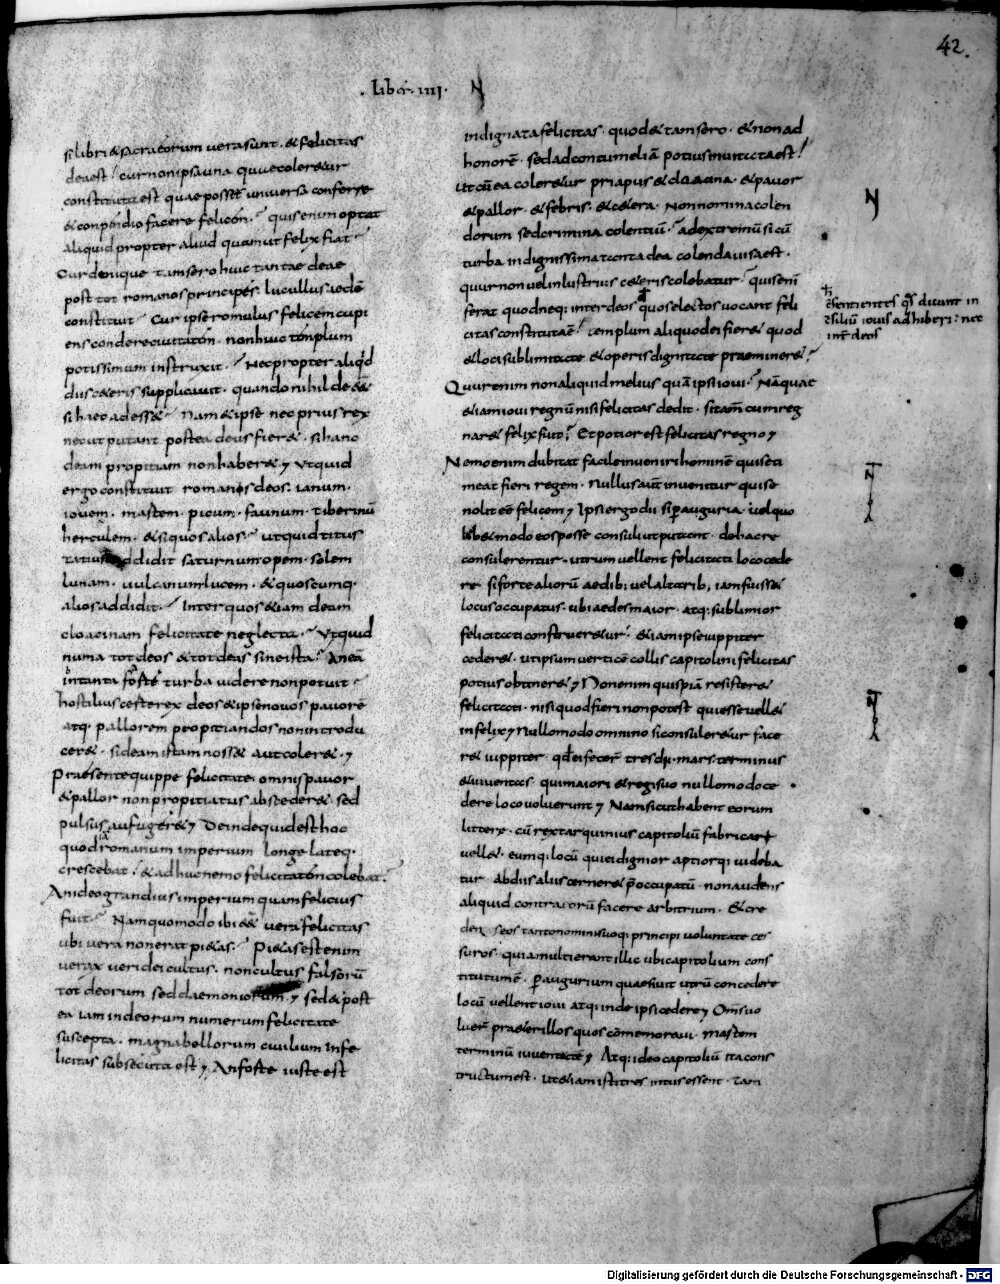 42.
. Liber. IIII.
si libri & sacra eorum uera sunt. & felicitas
dea est? cur non ipsa una quae coleretur
constituta est quae posset uniuersa conferre
& conpendio facere felicem? quis enim optat
aliquid propter aliud quam ut felix fiat?
Cur denique tam sero huic tantae deae
post tot romanos principes. lucullus aedem
constituit? Cur ipse romulus felicem cupi
ens condere ciuitatem. non huic templum
potissimum instruxit? Nec propter aliquid
diis ceteris supplicauit. quando nihil deesset
si haec adesset? Nam & ipse nec prius rex
nec ut putant postea deus fieret. si hanc
deam propitiam non haberet; Ut quid
ergo constituit romanis deos. ianum.
iouem. martem. picum. faunum. tiberinū
herculem. & si quos alios? ut quid titus
tatius addidit saturnum opem. solem
lunam. uulcanum lucem. & quoscumq.
alios addidit? Inter quos etiam deam
cloacinam felicitate neglecta? Ut quid
numa tot deos & tot deas sine ista? An eā
in tanta turba uidere non potuit?
hostilius certe rex deos & ipse nouos pauorē
atq. pallorem propitiandos non introdu
ceret. si deam istam nosset aut coleret;
Praesente quippe felicitate. omnis pauor
& pallor non propitiatus abscederet. sed
pulsus aufugeret; Deinde quid est hoc
quod romanum imperium longe lateq.
crescebat. & adhuc nemo felicitatem colebat?
An ideo grandius imperium quam felicius
fuit? Nam quomodo ibi esset uera felicitas
ubi uera non erat pietas? Pietas est enim
uerax ueri dei cultus. non cultus falsorū
tot deorum sed daemoniorum; sed & post
ea iam in deorum numerum felicitate
suscepta. magna bellorum ciuilium infe
licitas subsecuta est; An forte iuste est
indignata felicitas. quod & tam sero. & non ad
honorē. sed ad contumeliā potius inuitata est?
Ut cū ea coleretur priapus & cloacina. & pauor
& pallor. & febris. & cetera. Non nomina colen
dorum sed crimina colentiū? ad extremū si cū
turba indignissima tanta dea colenda uisa est.
quur non uel inlustrius ceteris colebatur? quis enī
ferat quod neq; inter deos quos electos uocant feli
citas constituta ē? templum aliquod ei fieret quod
& loci sublimitate & operis dignitate praemineret?
Quur enim non aliquid melius quā ipsi ioui? Nā quis
etiam ioui regnū nisi felicitas dedit. si tam cum reg
naret felix fuit? Et potior est felicitas regno;
Nemo enim dubitat facile inueniri hominē qui se ti
meat fieri regem. Nullus aūt inuenitur qui se
nolit eē felicem; Ipsi ergo dii si per auguria. uel quo
libet modo eos posse consuli putant. de hac re
consulerentur. utrum uellent felicitati loco cede
re. si forte aliorū aedib; uel altarib; iam fuisset
locus occupatus. ubi aedes maior. atq; sublimior
felicitati construeretur? etiam ipse iuppiter
cederet. ut ipsum uerticē collis capitolini felicitas
potius obtineret; Non enim quispiā resisteret
felicitati. nisi quod fieri non potest qui esse uellet
infelix; Nullo modo omnino si consuleretur face
ret iuppiter. qd ei fecer tres dii. mars. terminus
& iuuentas. qui maiori & regi suo nullo modo ce
dere loco uoluerunt; Nam sicut habent eorum
litterę. cū rex tarquinius capitoliū fabricare
uellet. eumq; locū qui ei dignior aptiorq; uideba
tur ab diis aliis cerneret p̄occupatū. non audens
aliquid contra eorū facere arbitrium. & cre
dens eos tanto nomini suoq; principi uoluntate ces
suros. quia multi erant illic ubi capitolium cons
titutum ē. p̄ augurium quaesiuit utrū concedere
locū uellent ioui atq; inde ipsi cedere; Om̄s uo
luer praeter illos quos cōmemoraui. martem
terminū iuuentatē; Atq; ideo capitoliū ita cons
tructum est. ut etiam isti tres intus essent. tam
Sentientes qs dicunt in
cōsiliū iouis adhiberi. nec
int deos
Digitalisierung gefördert durch die Deutsche Forschungsgemeinschaft - DFG